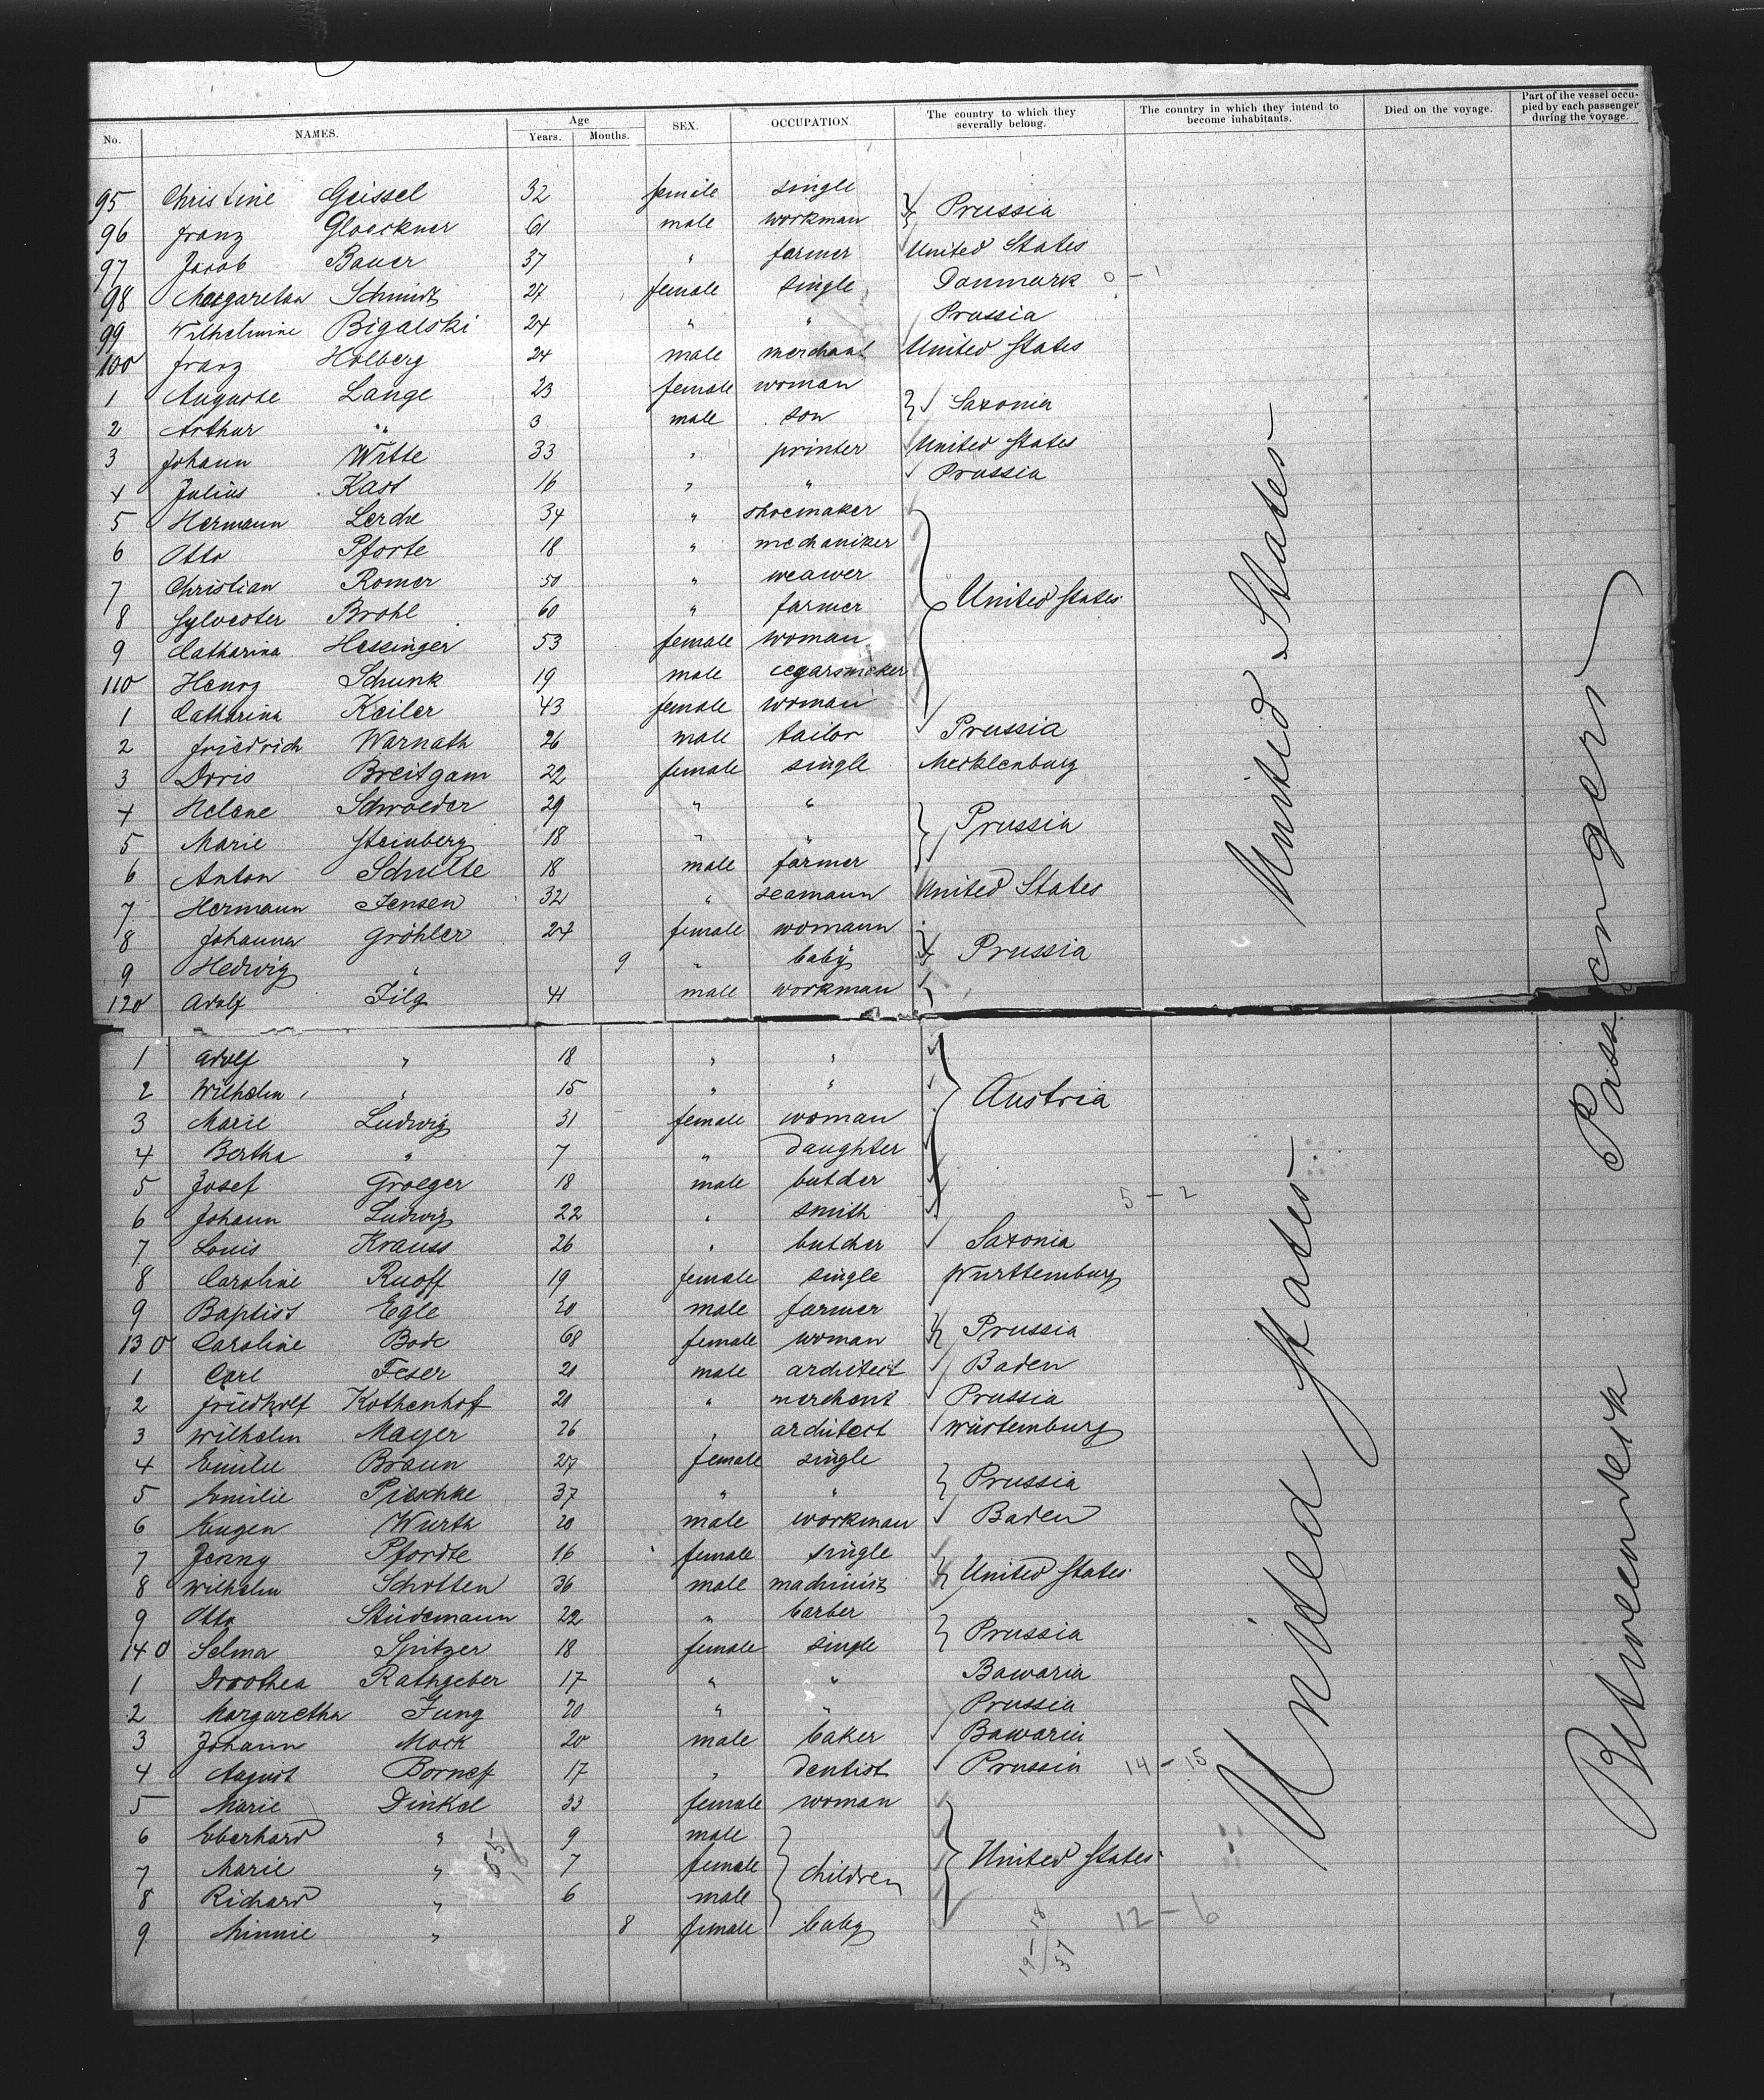 No. NAMES. Age Years. Months. SEX. OCCUPATION. The country to which they severally belong. The country in which they intend to become inhabitants. Died on the voyage. Part of the vessel occupied by each passenger during the voyage.
95 Christine Geissel 32 female single
Prussia
96 Franz Gloeckner 61 male workman
97 Jacob Bauer 37 " farmer United States
98 Margaretha Schmidt 27 female single Danmark 0 - 1
99 Wilhelmine Bigalski 24 " " Prussia
100 Franz Holberg 24 male merchant United States
1 Auguste Lange 23 female woman
Saxonia
2 Arthur " 3 male son
3 Johann Witte 33 " printer United States
4 Julius Kast 16 " " Prussia
5 Hermann Lerche 34 " shoemaker
6 Otto Pforte 18 " mechaniker
7 Christian Romer 50 " weawer
United States
8 Sylvester Brohl 60 " farmer
9 Catharina Hessinger 53 female woman
110 Henry Schunk 19 male cegarsmaker
1 Catharina Keiler 43 female woman
2 Friedrich Warnath 26 male tailor Prussia
3 Doris Breitgam 22 female single Mecklenburg
4 Helene Schroeder 29 " "
Prussia
5 Marie Steinberg 18 " "
6 Anton Schulte 18 male farmer
7 Hermann Jensen 32 " seamann United States
8 Johanna Gröhler 27 female womann
Prussia
9 Hedwig " 9 " baby
120 Adolf Jilg 41 male workman
United States
1 Adolf " 18 " "
2 Wilhelm " 15 " "
Austria
3 Marie Ludwig 31 female woman
4 Bertha " 7 " daughter
5 Josef Groeger 18 male butcher
5 - 2
6 Johann Ludwig 22 " smith
7 Louis Krauss 26 " butcher Saxonia
8 Caroline Ruoff 19 female single Wurttemburg
9 Baptist Egle 20 male farmer
Prussia
130 Caroline Bode 68 female woman
1 Carl Feser 21 male architect Baden
2 Friedholf Kothenhoff 21 " merchant Prussia
3 Wilhelm Mayer 26 " architect Würtemburg
4 Emilie Braun 27 female single
Prussia
5 Emilie Pieschke 37 " "
6 Eugen Wurth 20 male workman Baden
7 Jenny Pfordte 16 female single
United States
8 Wilhelm Schotten 36 male machinist
9 Otto Stüdemann 22 " barber
Prussia
140 Selma Spitzer 18 female single
1 Dorothea Rathgeber 17 " " Bawaria
2 Margaretha Jung 20 " " Prussia
3 Johann Mock 20 male baker Bawaria
4 August Borneff 17 " dentist Prussia 14 - 15
5 Marie Dinkel 33 female woman
6 Eberhard " 9 male
7 Marie " 7 female children United States
8 Richard " 6 male
9 Minnie " 8 female baby 12 - 6
United States
Betweendeck Passengers